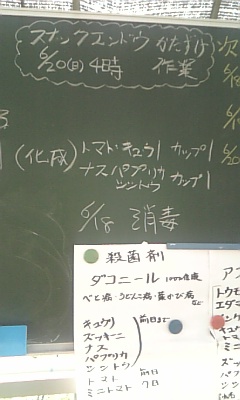 スナックエンドウ かたずけ
6/20(日) 4時 作業
(化成) トマト・キュウリ カップ1
ナス パプリカ シシトウ カップ1
6/18 消毒
殺菌剤
ダコニール 1000倍液
べと病・うどんこ病・葉かび病 など
キュウリ 前日まで
ズッキーニ
ナス
パプリカ
シシトウ
トマト 前日
ミニトマト 7日
次
6/
6/20
ア
トウモ
エダ
トマ
ミニ
ズッ